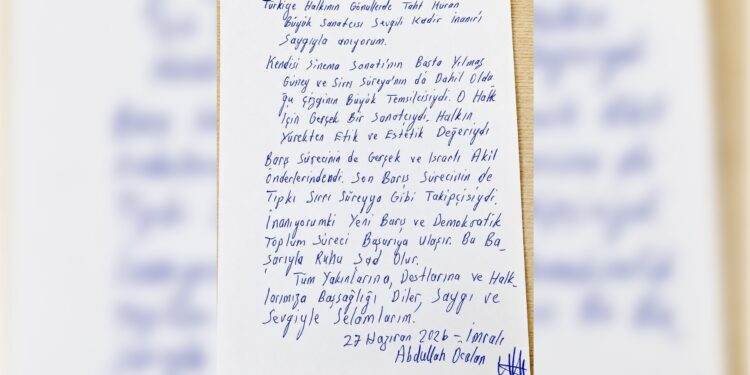 Türkiye Halkının Gönüllerde Taht Kuran
Büyük Sanatçısı Sevgili Kadir İnanır'ı
Saygıyla anıyorum.
Kendisi Sinema Sanatı'nın Başta Yılmaz
Güney ve Sırrı Süreya'nın da Dahil Oldu
ğu Çizginin Büyük Temsilcisiydi. O Halk
İçin Gerçek Bir Sanatçıydı. Halkın,
Yürekten Etik ve Estetik Değeriydi
Barış Sürecinin de Gerçek ve Israrlı Akil
Önderlerindendi. Son Barış Sürecinin de
Tıpkı Sırrı Süreyya Gibi Takipçisiydi.
İnanıyorumki Yeni Barış ve Demokratik
Toplum Süreci Başarıya Ulaşır. Bu Ba-
şarıyla Ruhu Şad Olur.
Tüm Yakınlarına, Dostlarına ve Halk-
larımıza Başsağlığı Diler, Saygı ve
Sevgiyle Selamlarım.
27 Haziran 2026 - İmralı
Abdullah Öcalan